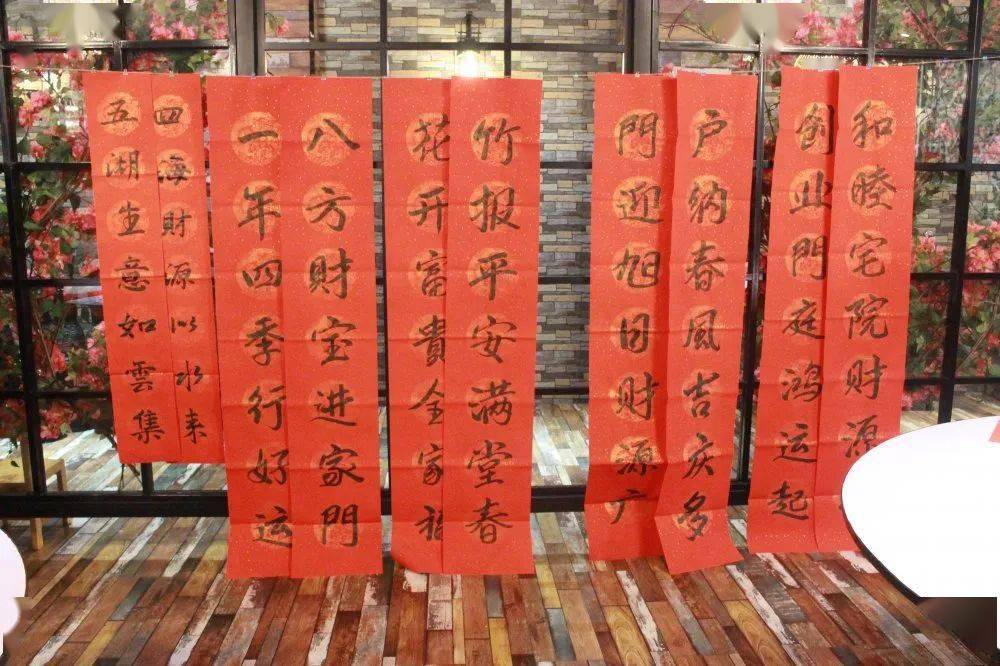 和睦宅院财源
创业門庭鸿运起
户纳春風吉庆多
門迎旭日财源广
竹报平安满堂春
花开富貴全家福
八方財宝进家門
一年四季行好运
四海財源似水来
五湖生意如雲集